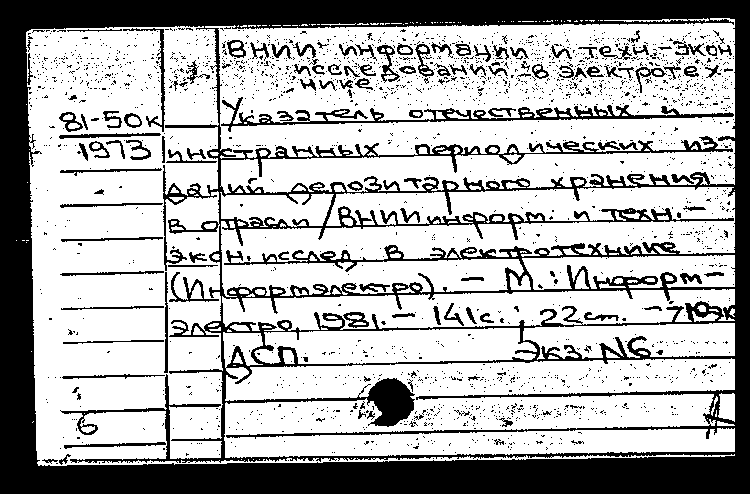 ВНИИ информации и техн.-экон
исследований в электротех-
нике
81-50к
1973
Указатель отечественных и
иностранных периодических из-
даний депозитарного хранения
в отрасли / ВНИИ информ. и техн.-
экон. исслед. в электротехнике
(Информэлектро). - М.: Информ-
электро, 1981. - 141с.; 22см. - 710эк
ДСП. Экз. N6.
6